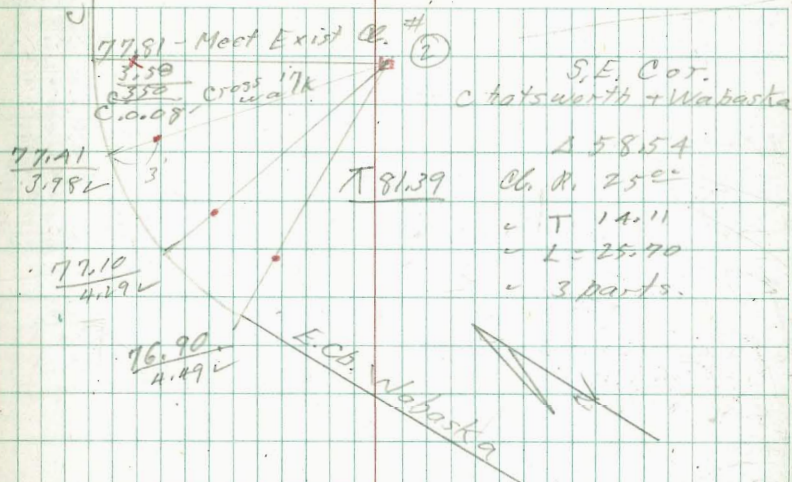 77.81 - Meet Exist Cb. #
2
3.58
350
C.0.08
Cross walk
S.E. Cor.
Chatsworth + Wabaska
Δ 58.54
Cb. R. 25⁰⁰
" T 14.11
" L = 25.70
" 3 parts.
77.41
3.98✓
3
⊼ 81.39
77.10
4.29✓
76.90
4.49✓
E. Cb. Wabaska